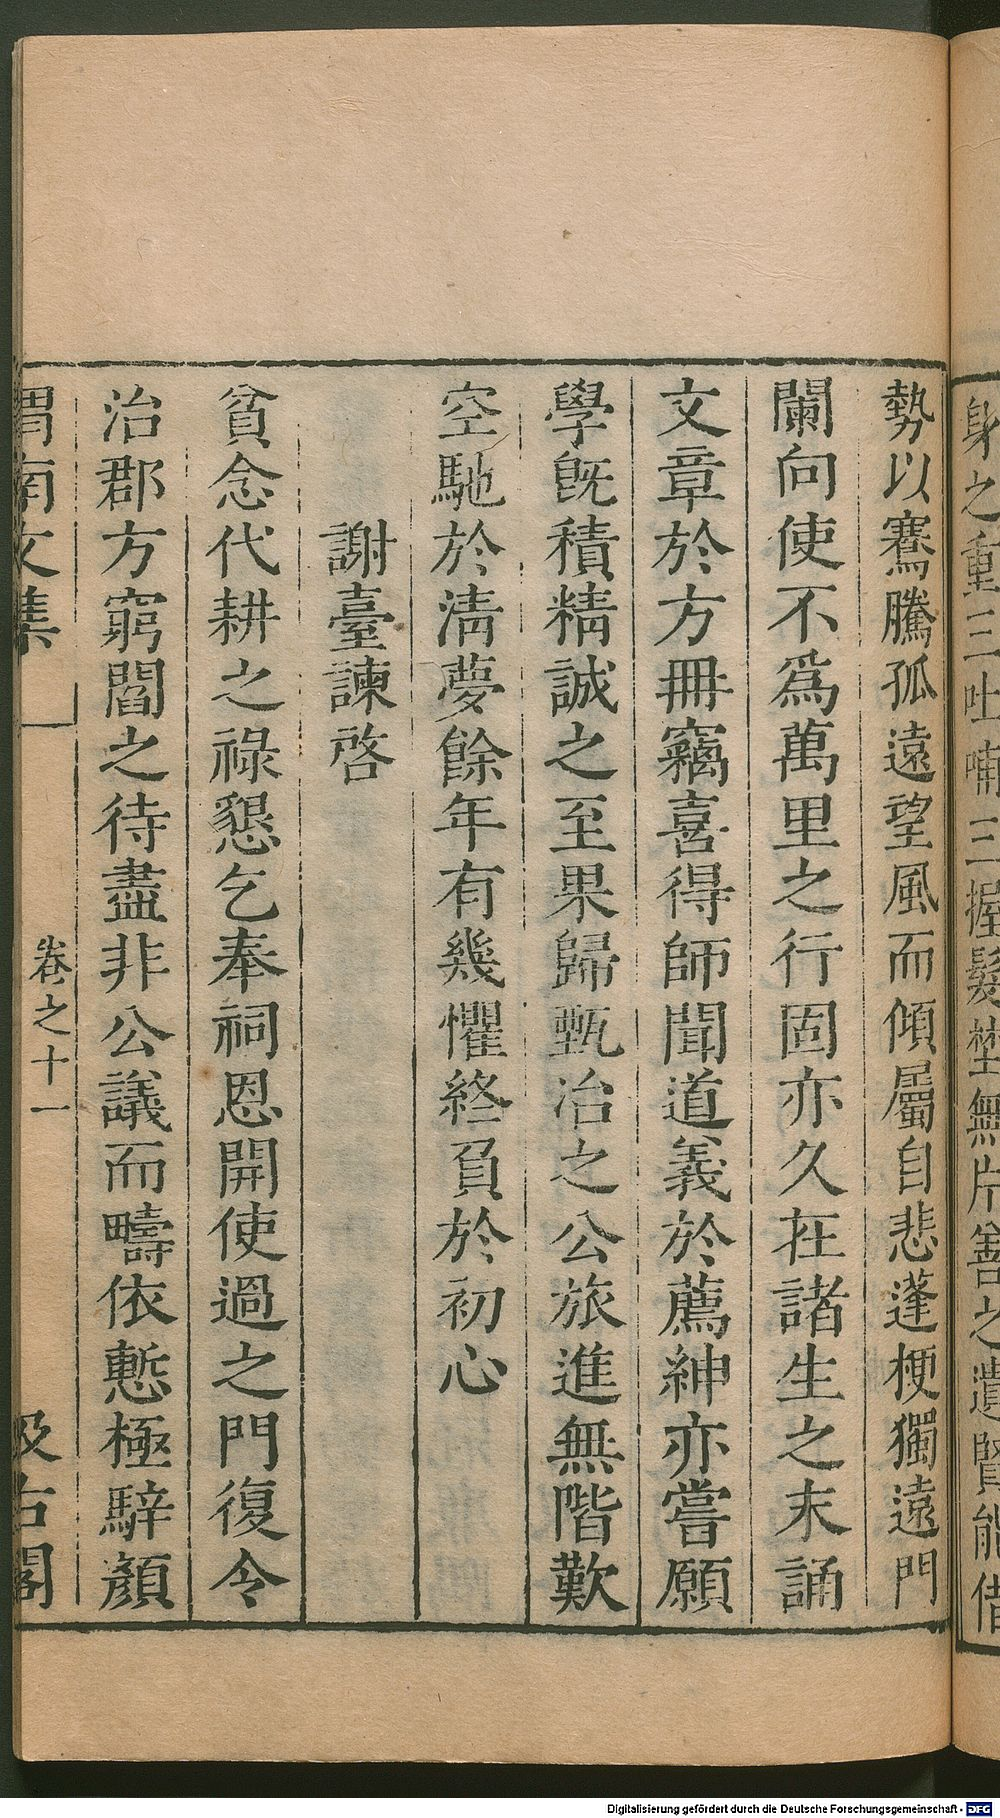 身之重三吐哺三握髮埜無片善之遺賢能借
勢以騫騰孤遠望風而傾屬自悲蓬梗獨遠門
闌向使不爲萬里之行固亦久在諸生之末誦
文章於方冊竊喜得師聞道義於薦紳亦嘗願
學旣積精誠之至果歸甄冶之公旅進無階歎
空馳於淸夢餘年有幾懼終負於初心
謝臺諫啓
貧念代耕之祿懇乞奉祠恩開使過之門復令
治郡方窮閻之待盡非公議而疇依慙極騂顏
渭南文集
卷之十一
汲古閣
Digitalisierung gefördert durch die Deutsche Forschungsgemeinschaft - DFG